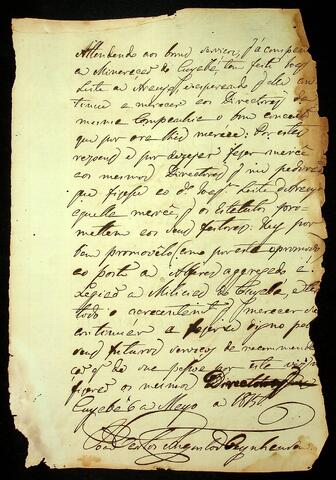 Attendendo aos bons serviços, q̃ á companhia
a Mineração do Cuyabá, tem feito
Leite de Araujo, e esperando q̃ elle con
tinue a merecer aos Directores da
mesma Companhia o bom conceito
que por ora lhes merece: Por estes
rezoens e por dezejar fazer mercê
aos mesmos Directores q̃ me pedirão
que fizesse ao do Leite de Araujo
aquella mercê, q̃ os Estatutos pro-
mettem aos seus feitores. Hey por
bem promovelo, como por este o promovo
ao posto de Alferes aggregado a
Legião de Milicias do Cuyabá, e
todo o accrecentamto q̃ merecer de
continuar a fazerse digno pelos
seus futuros serviços de recommendação
q̃ de se passe por este
fizerão os mesmos Directores
Cuyabá 6 de Mayo de 1815
João Carlos Augusto d'Oeynhausen